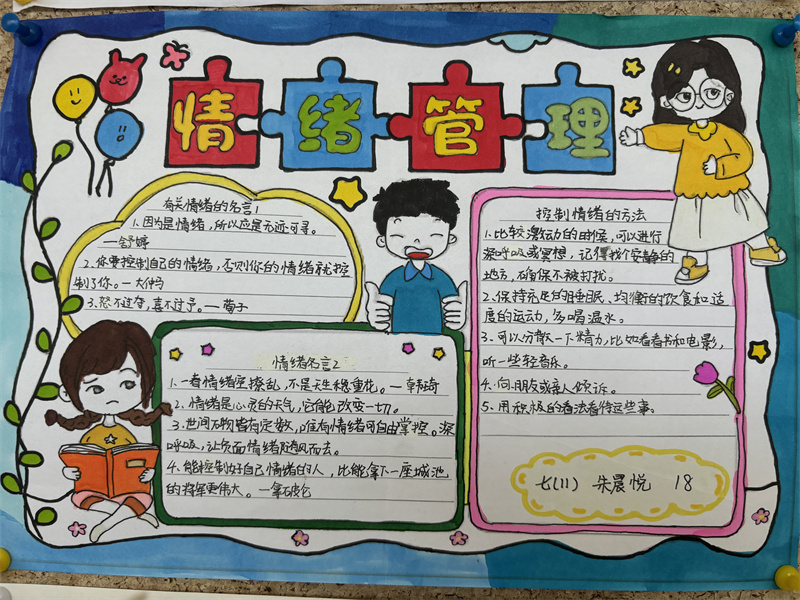 情绪管理
有关情绪的名言1
1.因为是情绪，所以应是无迹可寻。
—舒婷
2.你要控制自己的情绪，否则你的情绪就控
制了你。—大仲马
3.怒不过夺，喜不过予。—荀子
情绪名言2
1.一看情绪空撩乱，不是天生稳重花。—韩琦
2.情绪是心灵的天气，它能改变一切。
3.世间万物皆有定数，唯有情绪可自由掌控。深
呼吸，让负面情绪随风而去。
4.能控制好自己情绪的人，比能拿下一座城池
的将军更伟大。—拿破仑
控制情绪的方法
1.比较激动的时候，可以进行
深呼吸或冥想，记得找个安静的
地方，确保不被打扰。
2.保持充足的睡眠、均衡的饮食和适
度的运动，多喝温水。
3.可以分散一下精力，比如看看书和电影，
听一些轻音乐。
4.向朋友或亲人倾诉。
5.用积极的看法看待这些事。
七(11) 朱晨悦 18